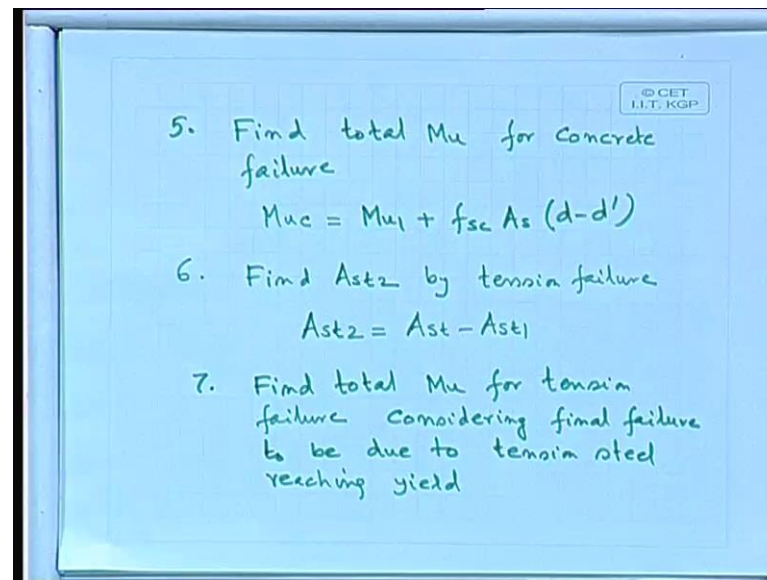 © CET
I.I.T. KGP
5. Find total Mu for Concrete
failure
Muc = Mu1 + fsc As (d-d')
6. Find Ast2 by tension failure
Ast2 = Ast - Ast1
7. Find total Mu for tension
failure considering final failure
to be due to tension steel
reaching yield